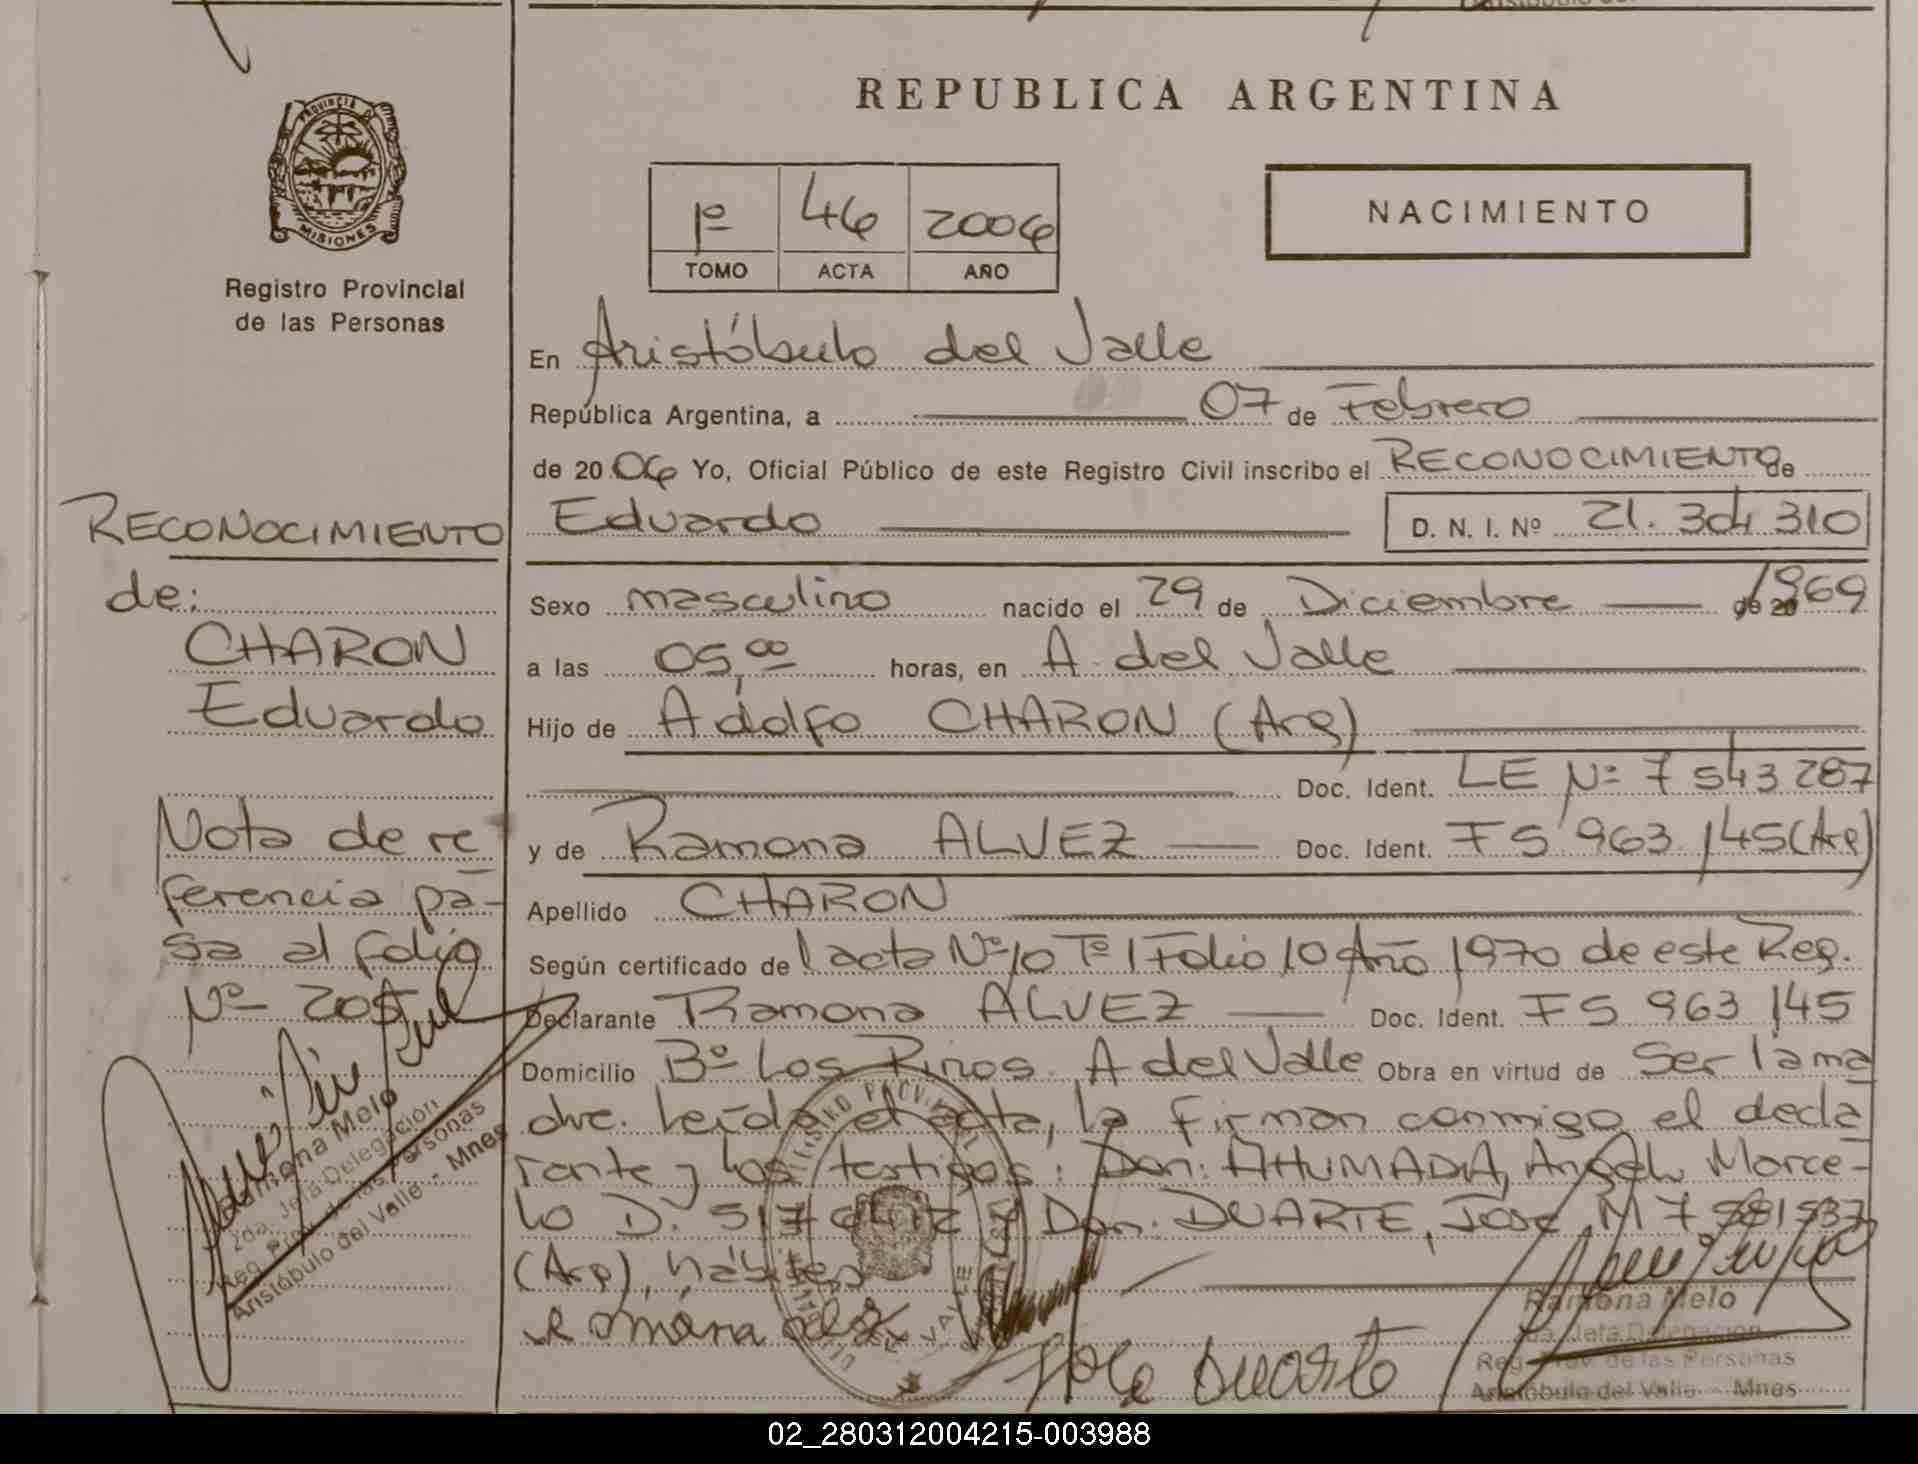 REPUBLICA ARGENTINA
PROVINCIA DE
MISIONES
Registro Provincial
de las Personas
1º 46 2006
TOMO ACTA AÑO
NACIMIENTO
En Aristóbulo del Valle
República Argentina, a 07 de Febrero
de 20 06 Yo, Oficial Público de este Registro Civil inscribo el RECONOCIMIENTO de
Eduardo D. N. I. Nº 21.304 310
Sexo masculino nacido el 29 de Diciembre de 20 1969
a las 05,00 horas, en A. del Valle
Hijo de Adolfo CHARON (Arg)
Doc. Ident. LE Nº 7 543 287
y de Ramona ALVEZ Doc. Ident. F 5 963 145 (Arg)
Apellido CHARON
Según certificado de 1 acta Nº 10 Tº 1 Folio 10 Año 1970 de este Reg.
Declarante Ramona ALVEZ Doc. Ident. F 5 963 145
Domicilio Bº Los Pinos A del Valle Obra en virtud de Ser la ma
dre. Leída el acta, la firman conmigo el decla
rante y los testigos: Don: AHUMADA, Angel Marce-
lo D. y Don. DUARTE, José M 7
(Arg), hábiles
Jose Duarte
Ramona Melo
2da. Jefa Delegación
Reg. Prov. de las Personas
Aristóbulo del Valle - Mnes
RECONOCIMIENTO
de:
CHARON
Eduardo
Nota de re
ferencia pa-
sa al folio
Nº 205
Ramona Melo
2da. Jefa Delegación
Reg. Prov. de las Personas
Aristóbulo del Valle - Mnes
02_280312004215-003988